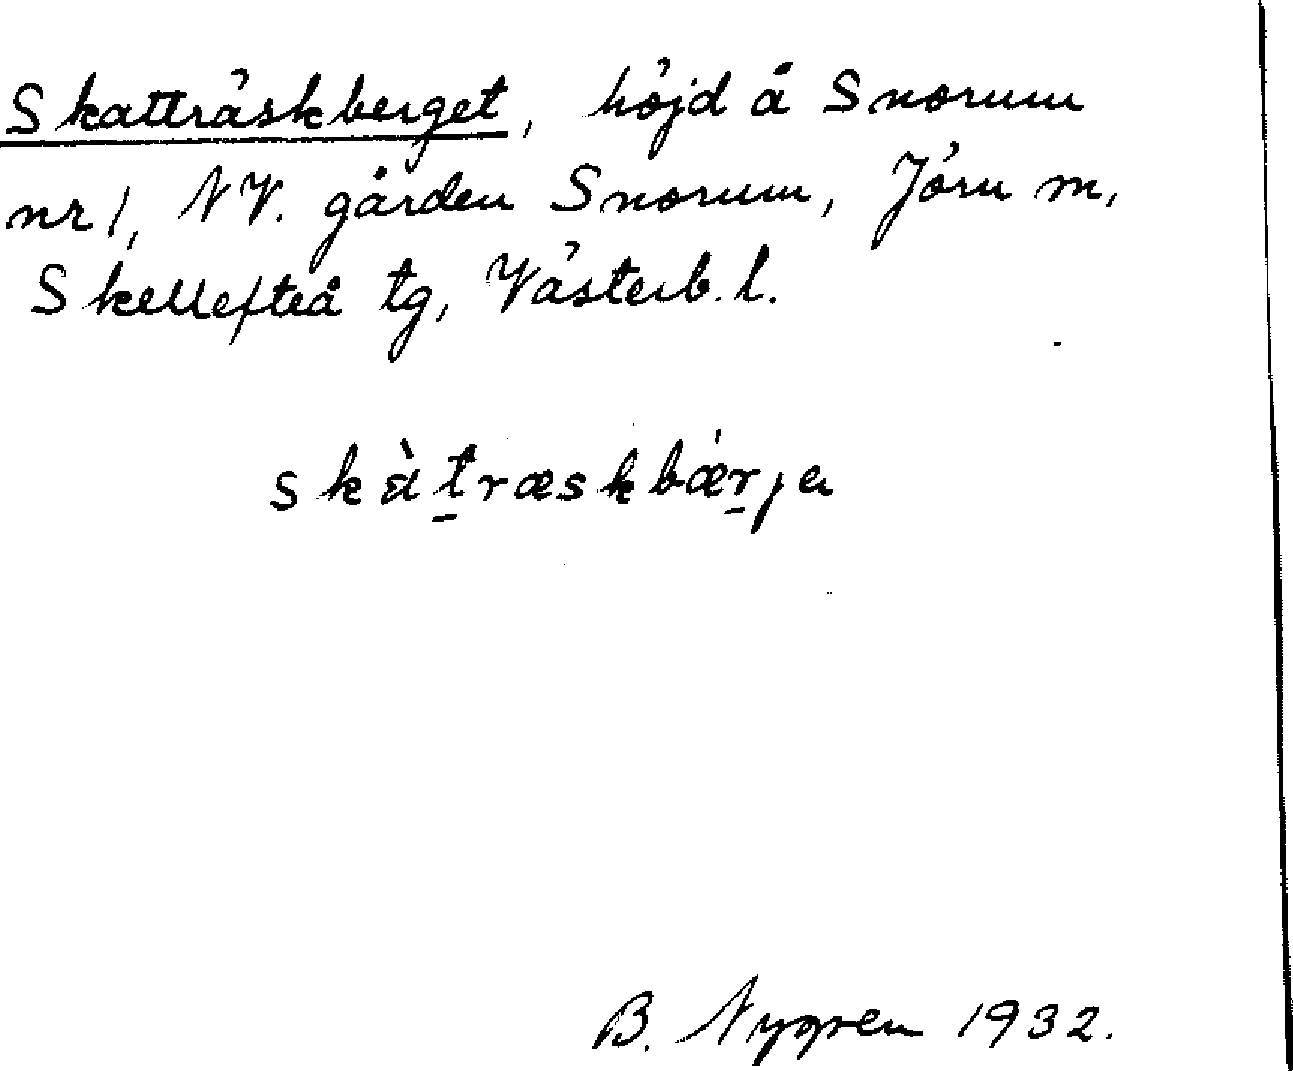 Skatträskberget, höjd å Snorum
nr 1, NV. gården Snorum, Jörn m,
Skellefteå tg, Västerb. l.
skàt̠ræskbǽr̠ja
B. Nygren 1932.